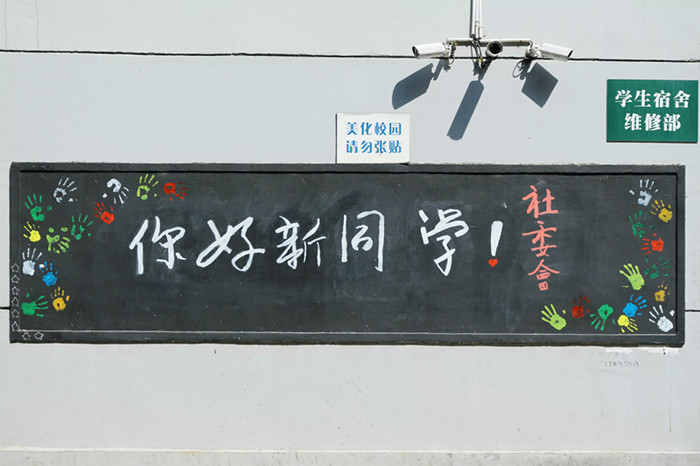 学生宿舍
维修部
美化校园
请勿张贴
你好新同学!
社委会